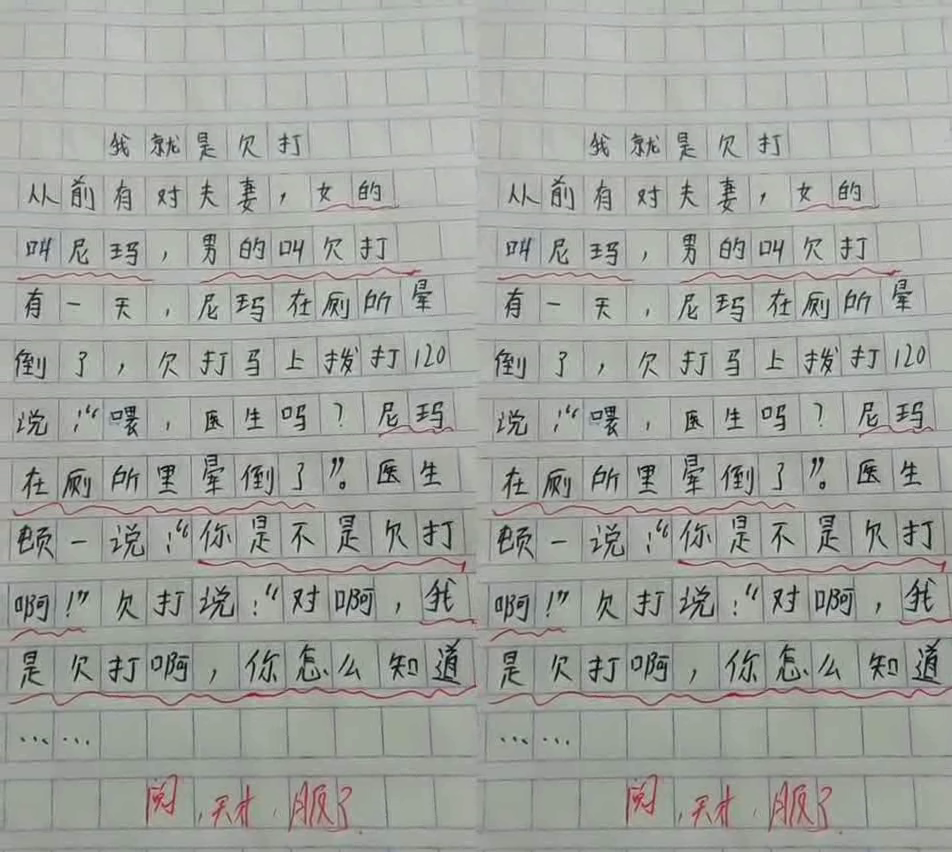 我就是欠打
从前有对夫妻，女的
叫尼玛，男的叫欠打
有一天，尼玛在厕所晕
倒了，欠打马上拨打120
说：“喂，医生吗？尼玛
在厕所里晕倒了”。医生
顿一说：“你是不是欠打
啊！”欠打说：“对啊，我
是欠打啊，你怎么知道
……
阅，天才，服了
我就是欠打
从前有对夫妻，女的
叫尼玛，男的叫欠打
有一天，尼玛在厕所晕
倒了，欠打马上拨打120
说：“喂，医生吗？尼玛
在厕所里晕倒了”。医生
顿一说：“你是不是欠打
啊！”欠打说：“对啊，我
是欠打啊，你怎么知道
……
阅，天才，服了